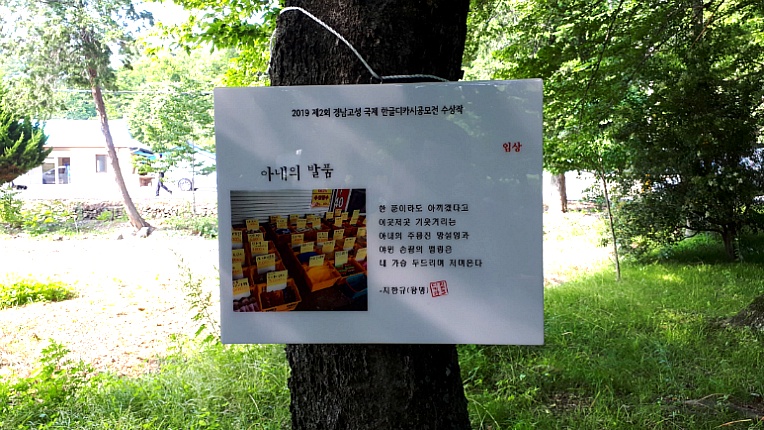 2019 제2회 경남고성 국제 한글디카시공모전 수상작
입상
아내의 발품
한 푼이라도 아끼겠다고
이곳저곳 기웃거리는
아내의 주름진 망설임과
야윈 손등의 떨림은
내 가슴 두드리며 저며온다
-지한규(광명)